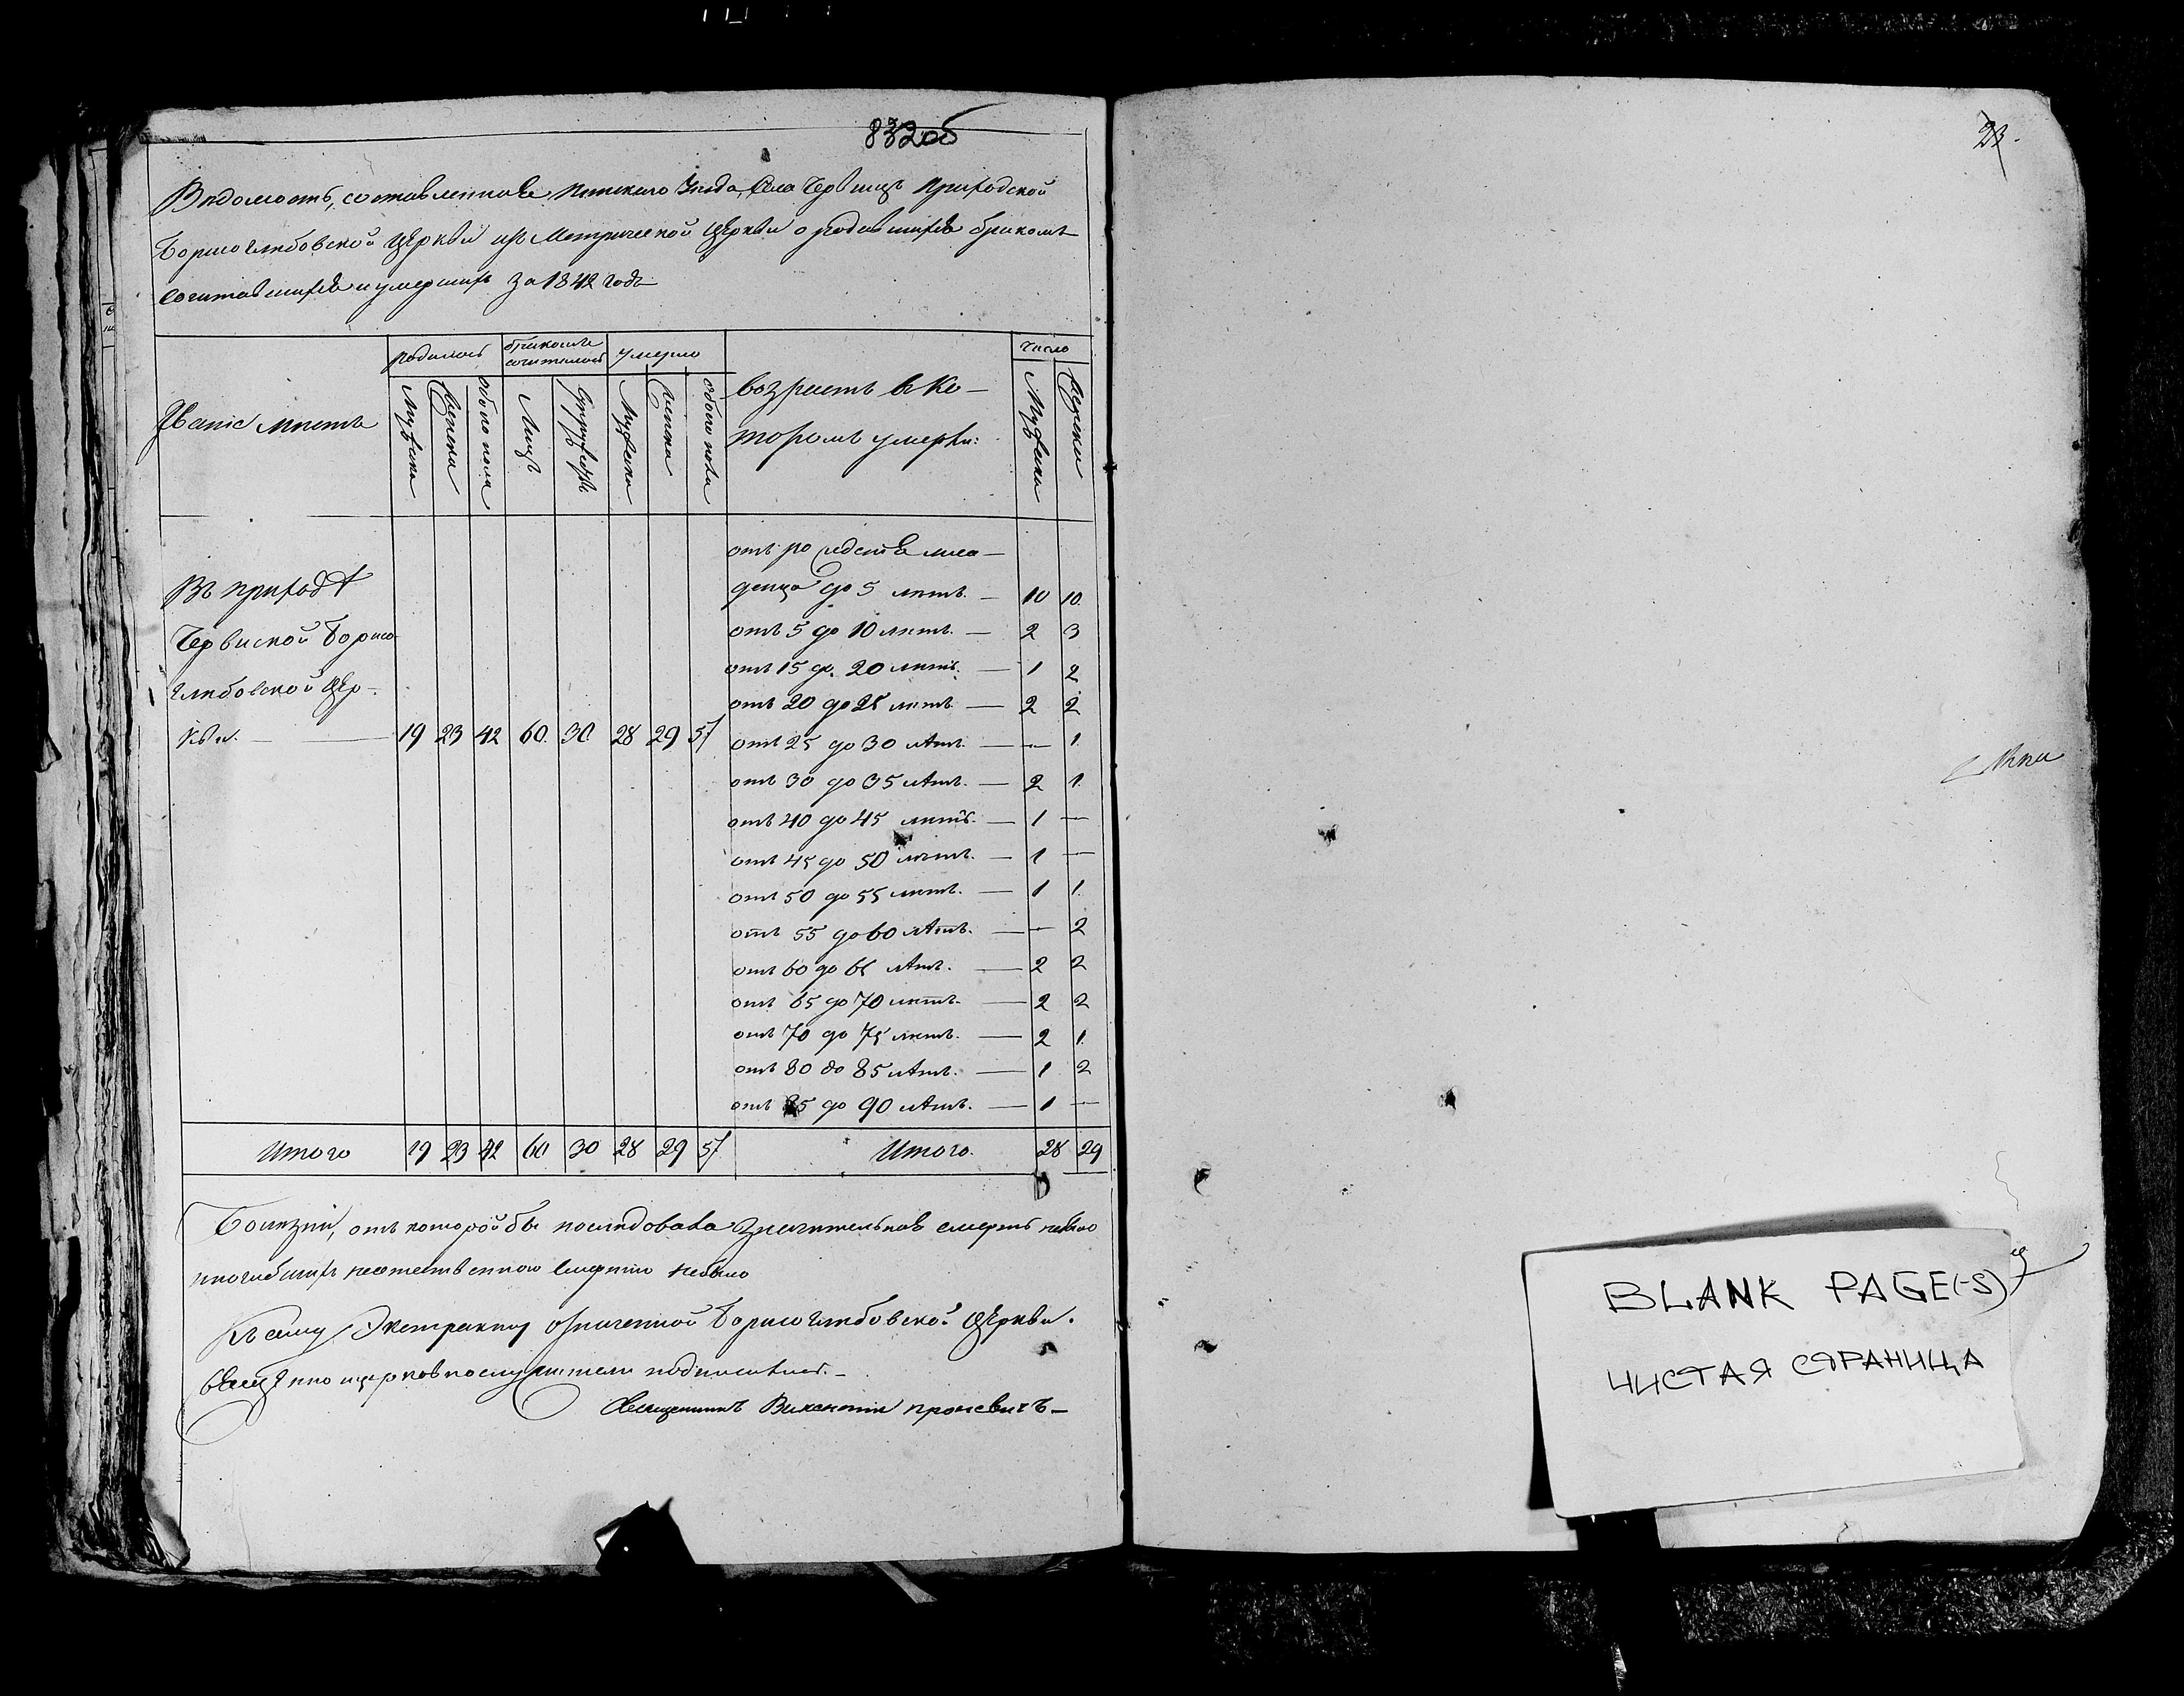 832об
Вѣдомость, составленная Пинскаго Уѣзда, Села Червищъ Приходской
Борисоглѣбовской Церкви изъ Метрической Церкви о родившихся бракомъ
сочитавшихся и умершихъ за 1842 годъ
родилось бракомъ сочиталось умерло число
Званіе мѣстъ Мужска Женска обоего пола Лицъ Супружествъ Мужска Женска обоего пола возрастъ въ ко-
торомъ умерли: Мужска Женска
отъ рождества мла-
Въ приходѣ
денца до 5 лѣтъ. — 10 10.
Червиской Борисо-
отъ 5 до 10 лѣтъ. — 2 3
отъ 15 до 20 лѣтъ. — 1 2
глѣбовской Цер-
отъ 20 до 25 лѣтъ — 2 2
кви. — 19 23 42 60. 30. 28 29 57
отъ 25 до 30 лѣтъ. — — 1.
отъ 30 до 35 лѣтъ. — 2 1.
отъ 40 до 45 лѣтъ. — 1 —
отъ 45 до 50 лѣтъ. — 1 —
отъ 50 до 55 лѣтъ. — 1 1.
отъ 55 до 60 лѣтъ. — — 2
отъ 60 до 65 лѣтъ. — 2 2
отъ 65 до 70 лѣтъ. — 2 2
отъ 70 до 75 лѣтъ. — 2 1.
отъ 80 до 85 лѣтъ. — 1 2
отъ 85 до 90 лѣтъ. — 1 —
Итого 19 23 42 60 30 28 29 57 Итого. 28 29
Болѣзни, отъ которой бы послѣдовала значительная смерть небыло
и погибшихъ неестественною смертію небыло
Къ сему Экстракту означенной Борисоглѣбовской Церкви.
Священно и церковнослужители подписались. —
Священникъ Викентій Проневичъ —
23.
BLANK PAGE(-S)
ЧИСТАЯ СТРАНИЦА